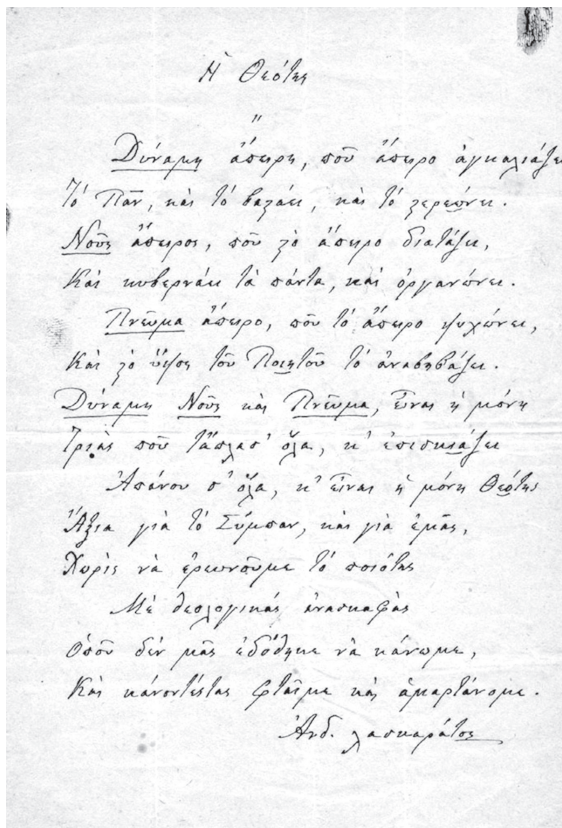 Ἡ Θεότης
〃
Δύναμη ἄπειρη, ποῦ ἄπειρο ἀγκαλιάζει
Τὸ Πᾶν, καὶ τὸ βαλάει, καὶ τὸ ζερεόνει.
Νοῦς ἄπειρος, ποῦ τὸ ἄπειρο διατάζει,
Καὶ κυβερνάει τὰ πάντα, καὶ ὀργανώνει.
Πνεῦμα ἄπειρο, ποῦ τὸ ἄπειρο ψυχώνει,
Καὶ τὸ ὕψος τοῦ Ποιητοῦ τὸ ἀναβιβάζει.
Δύναμη Νοῦς καὶ Πνεῦμα, εἶναι ἡ μόνη
Τριὰς ποῦ τἄπλασ' ὅλα, κ' ἐπισκιάζει
Ἀπάνου σ' ὅλα, κ' εἶναι ἡ μόνη Θεότης
Ἄξια γιὰ τὸ Σύμπαν, καὶ γιὰ ἐμᾶς,
Χωρὶς νὰ ἐρευνοῦμε τὸ ποιότης
Μὲ θεολογικὰς ἀνασκαφὰς
Ὁποῦ δὲν μᾶς ἐδόθηκε νὰ κάνωμε,
Καὶ κάνοντέςτας φταῖμε καὶ ἁμαρτάνομε.
Ἀνδ. Λασκαράτος